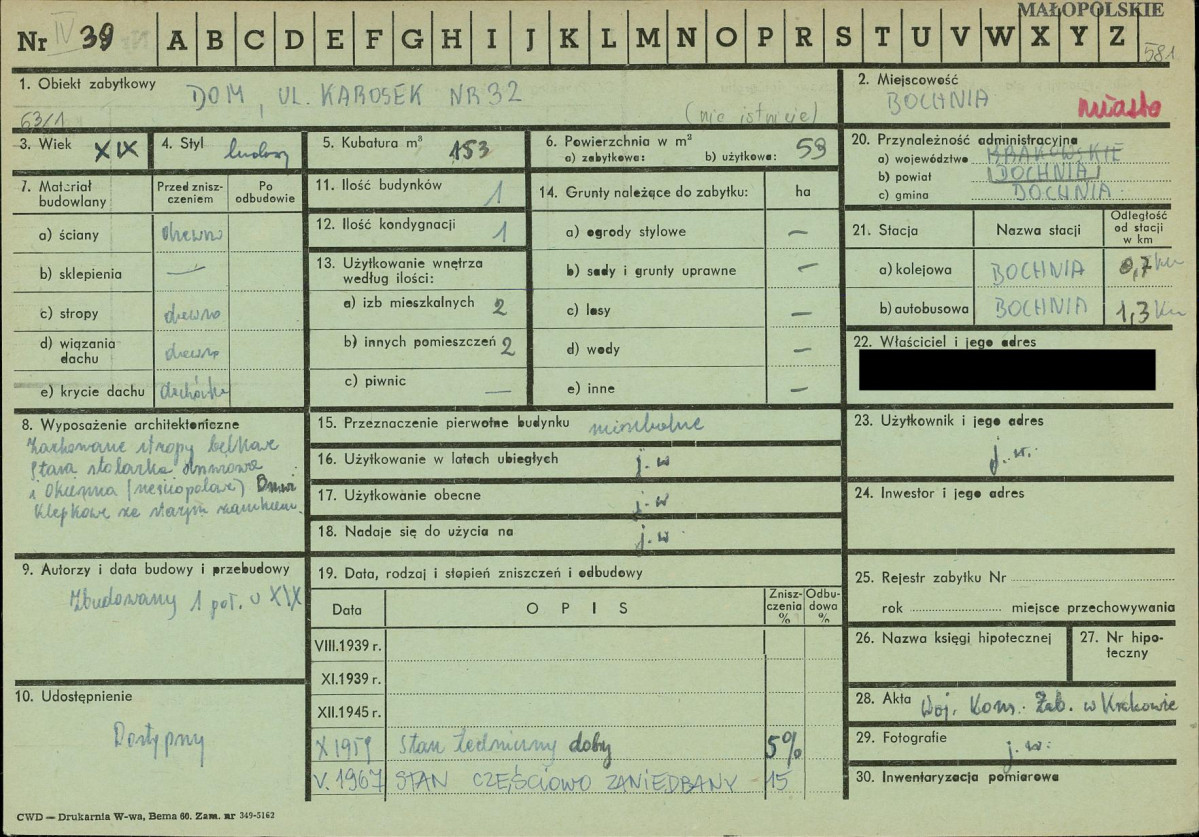 MAŁOPOLSKIE
Nr IV 39 A B C D E F G H I J K L M N O P R S T U V W X Y Z
581
1. Obiekt zabytkowy DOM, UL. KAROSEK NR 32
(nie istnieje)
63/1
2. Miejscowość
BOCHNIA
miasto
3. Wiek XIX
4. Styl ludowy
5. Kubatura m³ 153
6. Powierzchnia w m²
a) zabytkowa: b) użytkowa: 59
20. Przynależność administracyjna
a) województwo KRAKOWSKIE
b) powiat BOCHNIA
c) gmina BOCHNIA
7. Materiał budowlany
Przed zniszczeniem
Po odbudowie
a) ściany drewno
b) sklepienia —
c) stropy drewno
d) wiązania dachu drewno
e) krycie dachu dachówka
11. Ilość budynków 1
12. Ilość kondygnacji 1
13. Użytkowanie wnętrza według ilości:
a) izb mieszkalnych 2
b) innych pomieszczeń 2
c) piwnic —
14. Grunty należące do zabytku: ha
a) ogrody stylowe —
b) sady i grunty uprawne —
c) lasy —
d) wody —
e) inne —
21. Stacja
Nazwa stacji
Odległość od stacji w km
a) kolejowa BOCHNIA 0,7 km
b) autobusowa BOCHNIA 1,3 km
22. Właściciel i jego adres
8. Wyposażenie architektoniczne
Zachowane stropy belkowe
Stara stolarka drzwiowa
i okienna (sześciopolowe) Drzwi
klepkowe ze starym zamkiem.
15. Przeznaczenie pierwotne budynku mieszkalne
16. Użytkowanie w latach ubiegłych j. w
17. Użytkowanie obecne j. w
18. Nadaje się do użycia na j. w
23. Użytkownik i jego adres
j. w.
24. Inwestor i jego adres
9. Autorzy i data budowy i przebudowy
Zbudowany 1 poł. w XIX
10. Udostępnienie
Dostępny
19. Data, rodzaj i stopień zniszczeń i odbudowy
Data
OPIS
Zniszczenia %
Odbudowa %
VIII.1939 r.
XI.1939 r.
XII.1945 r.
X 1959 Stan techniczny dobry 5%
V. 1967 STAN CZĘŚCIOWO ZANIEDBANY 15
25. Rejestr zabytku Nr
rok miejsce przechowywania
26. Nazwa księgi hipotecznej
27. Nr hipoteczny
28. Akta Woj. Kons. Zab. w Krakowie
29. Fotografie j. w.
30. Inwentaryzacja pomiarowa
CWD — Drukarnia W-wa, Bema 60. Zam. nr 349-5162